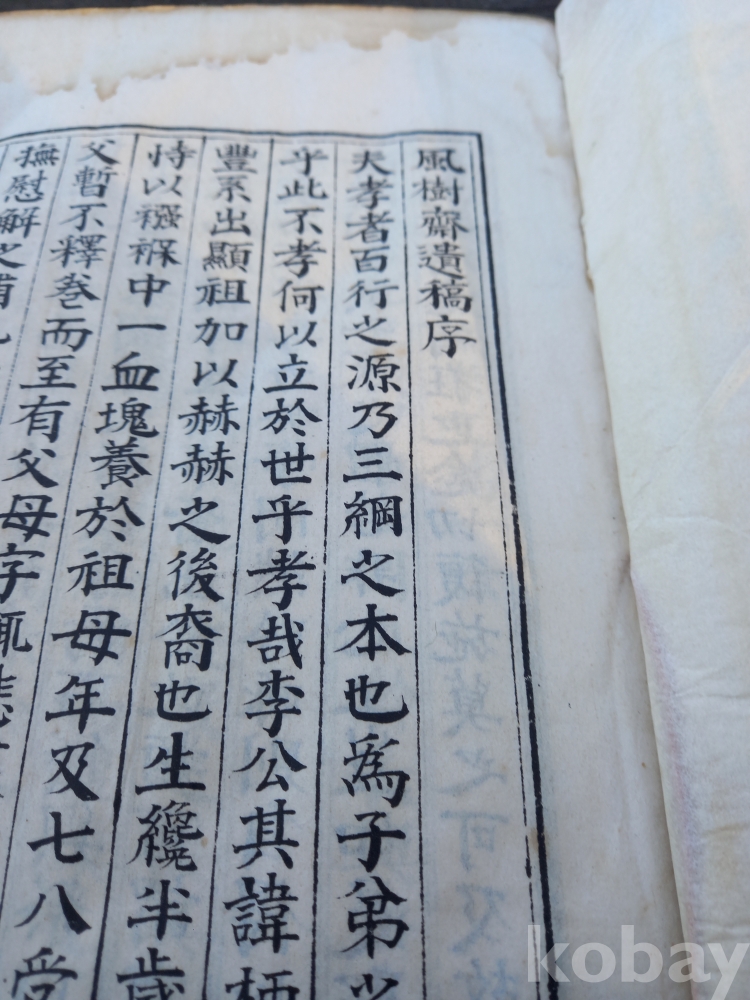 風樹齋遺稿序
夫孝者百行之源乃三綱之本也爲子弟之
乎此不孝何以立於世乎孝哉李公其諱柄
豐系出顯祖加以赫赫之後裔也生纔半歲
恃以襁褓中一血塊養於祖母年及七八受
父暫不釋卷而至有父母字
撫慰解之
kobay